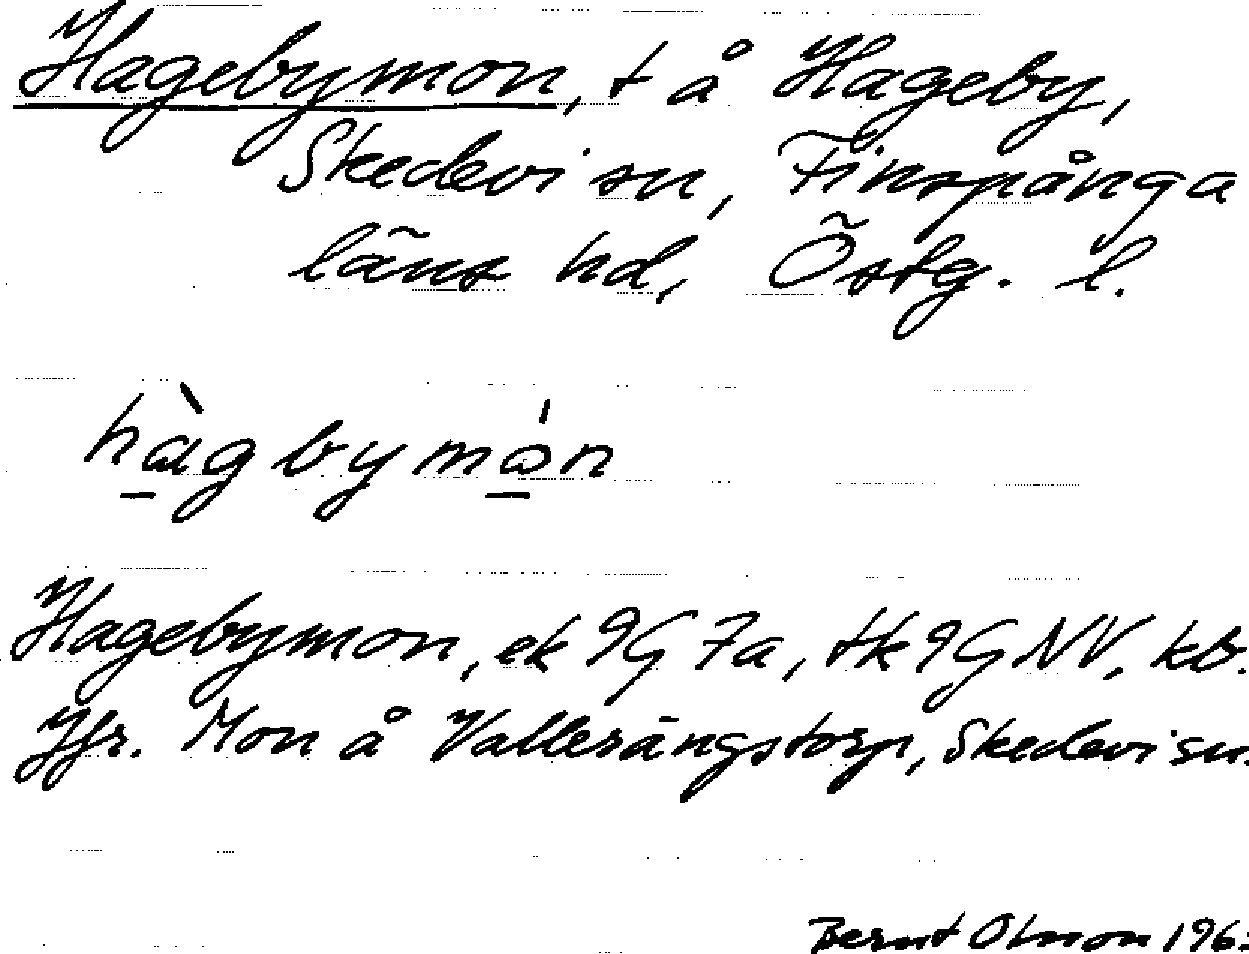 Hagebymon, t å Hageby,
Skedevi sn, Finspånga
läns hd, Östg. l.
hàgbymón
Hagebymon, ek 9G 7a, tk 9G NV, kb.
Jfr. Mon å Vallerängstorp, Skedevi sn.
Bernt Olsson 196